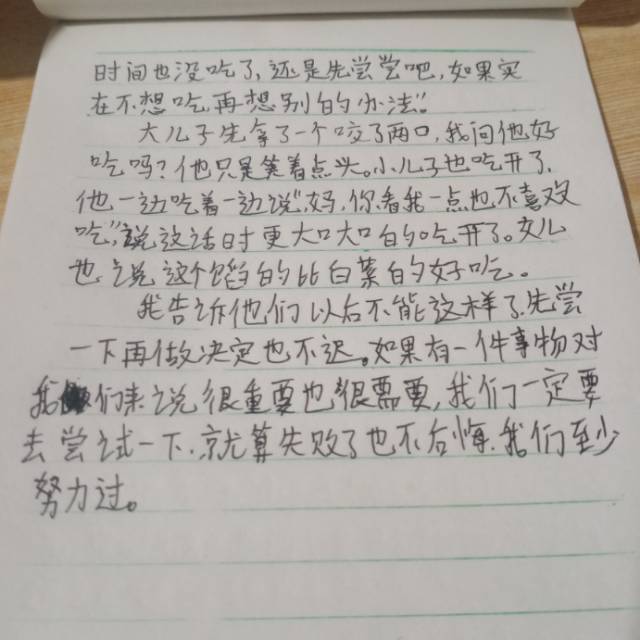 时间也没吃了，还是先尝尝吧，如果实
在不想吃再想别的办法"。
大儿子先拿了一个咬了两口，我问他好
吃吗？他只是笑着点头。小儿子也吃开了，
他一边吃着一边说"妈，你看我一点也不喜欢
吃"说这话时更大口大口的吃开了。女儿
也说这个馅的比白菜的好吃。
我告诉他们以后不能这样了，先尝
一下再做决定也不迟。如果有一件事物对
我们来说很重要也很需要，我们一定要
去尝试一下，就算失败了也不后悔，我们至少
努力过。